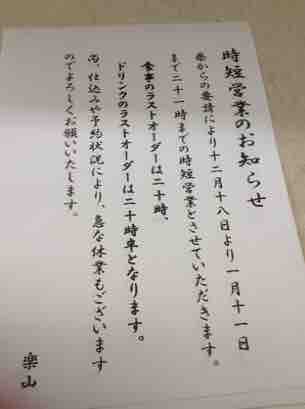 時短営業のお知らせ
県からの要請により十二月十八日より一月十一日
まで二十一時までの時短営業とさせていただきます。
食事のラストオーダーは二十時、
ドリンクのラストオーダーは二十時半となります。
尚、仕込みや予約状況により、急な休業もございます
のでよろしくお願いいたします。
楽山